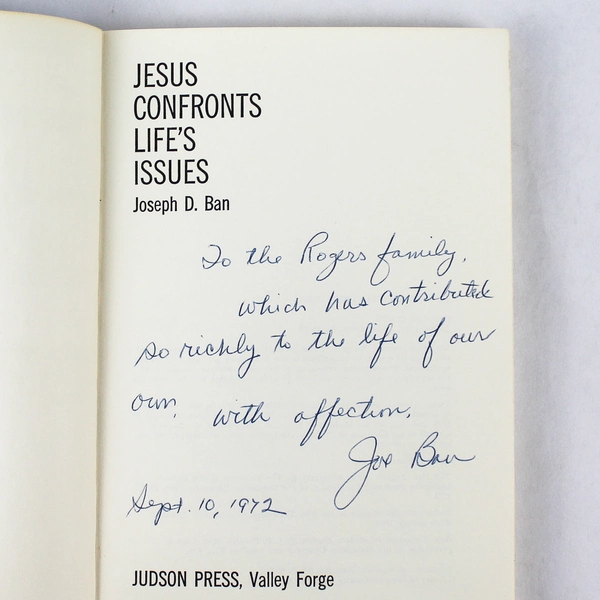 JESUS
CONFRONTS
LIFE'S
ISSUES
Joseph D. Ban
To the Rogers family,
which has contributed
so richly to the life of our
own.
with affection,
Joe Ban
Sept. 10, 1972
JUDSON PRESS, Valley Forge